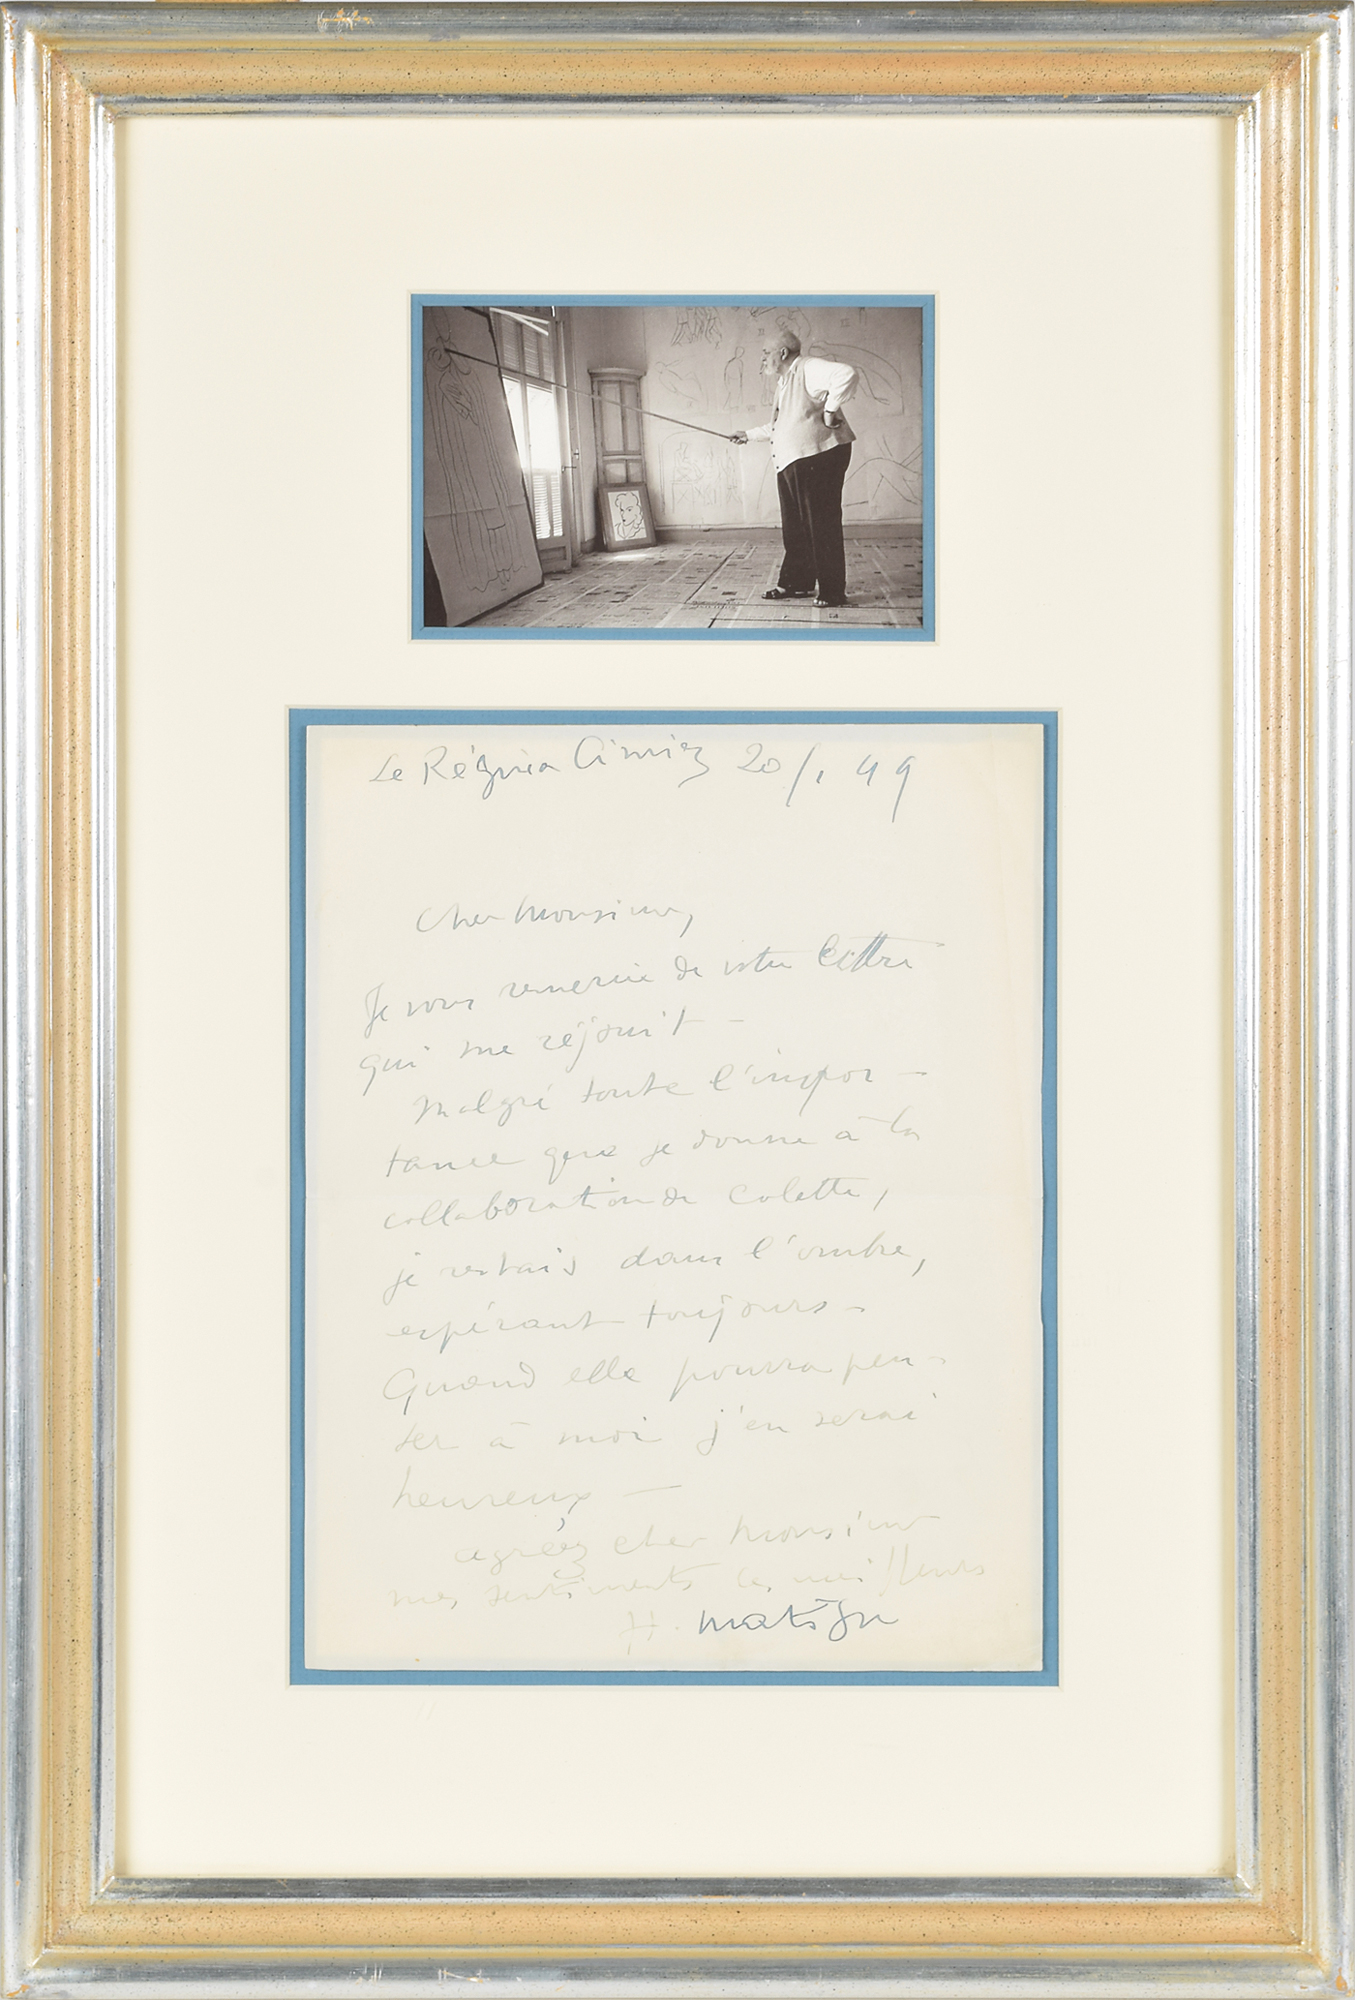 Le Régina Cimiez 20/1 49
Cher Monsieur,
Je vous remercie de votre lettre
qui me réjouit –
Malgré toute l'impor-
tance que je donne à la
collaboration de Colette,
je restais dans l'ombre,
espérant toujours –
Quand elle pourra pen-
ser à moi j'en serai
heureux –
agréez cher Monsieur
mes sentiments les meilleurs
H. Matisse